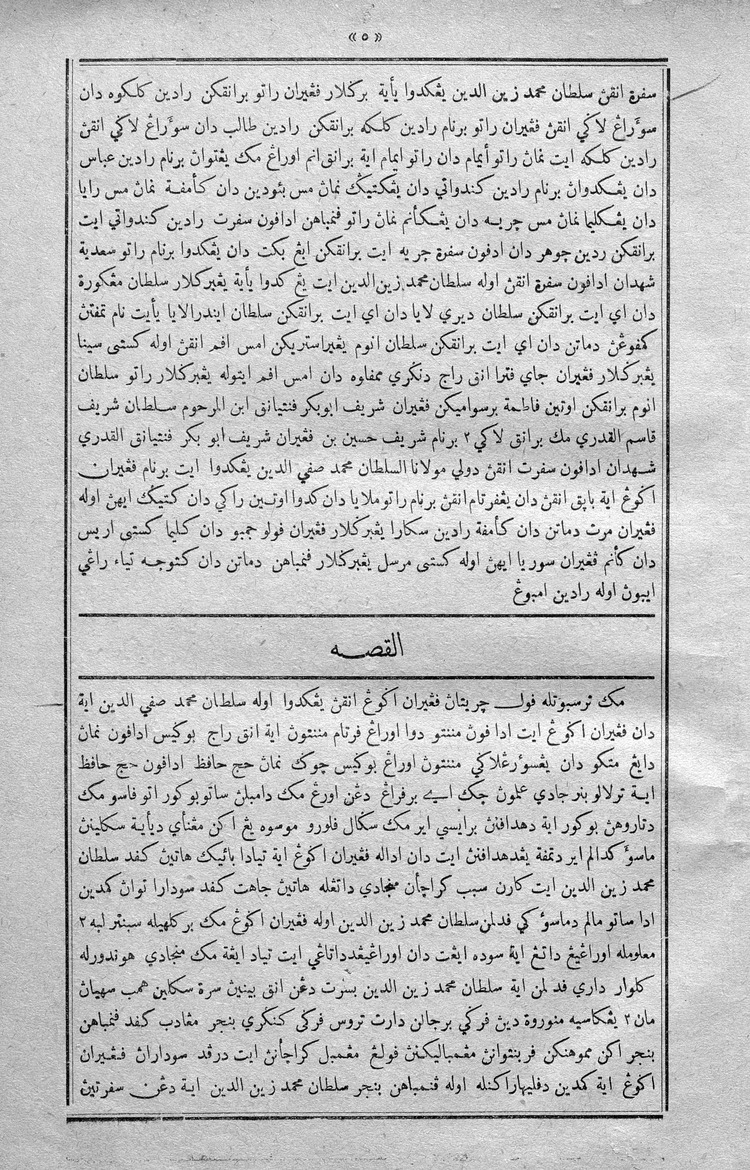 «٥»
سفرة انقڽ سلطان محمد زين الدين يڠكدوا يأية برݢلار ڤڠيران راتو برانقكن رادين كلكوه دان
سوٴراڠ لاݢي انقڽ ڤڠيران راتو برنام رادين كلكه برانقكن رادين طالب دان سوٴراڠ لاݢي انقڽ
رادين كلكه ايت نماڽ راتو أيمام دان راتو ايمام اية برانق انم اوراڠ مك يڠتواڽ برنام رادين عباس
دان يڠكدواڽ برنام رادين كندواتي دان يڠكتيݢڽ نماڽ مس بثودين دان كأمفة نماڽ مس رايا
دان يڠكليما نماڽ مس جربه دان يڠكأنم نماڽ راتو ڤنمباهن ادافون سفرت رادين كندواتي ايت
برانقكن ردين جوهر دان ادفون سفرة جربه ايت برانقكن ابڠ بكت دان يڠكدوا برنام راتو سعدية
شهدان ادافون سفرة انقڽ اوله سلطان محمد زين الدين ايت يڠ كدوا يأية يڠبرݢلار سلطان مڠكورة
دان اي ايت برانقكن سلطان ديري لايا دان اي ايت برانقكن سلطان ايندرالايا يأيت نام تمفتڽ
كمفوڠڽ دماتن دان اي ايت برانقكن سلطان انوم يڠبراستريكن امس افم انقڽ اوله كستى سينا
يڠبرݢلار ڤڠيران جاي فترا انق راج دنݢري ممفاوه دان امس افم ايتوله يڠبرݢلار راتو سلطان
انوم برانقكن اوتين فاطمة برسواميكن ڤڠيران شريف ابوبكر فنتيانق ابن المرحوم سلطان شريف
قاسم القدري مك برانق لاݢي ٢ برنام شريف حسين بن ڤڠيران شريف ابو بكر فنتيانق القدري
شهدان ادافون سفرت انقڽ دولي مولانا السلطان محمد صفي الدين يڠكدوا ايت برنام ڤڠيران
اݢوڠ اية باڤق انقڽ دان يڠفرتام انقڽ برنام راتو ملايا دان كدوا اوتين راكي دان كتيݢ ايهڽ اوله
ڤڠيران مرت دماتن دان كأمفة رادين سكارا يڠبرݢلار ڤڠيران فولو جمبو دان كليما كستى اريس
دان كأنم ڤڠيران سوريا ايهڽ اوله كستى مرسل يڠبرݢلار ڤنمباهن دماتن دان كتوجه تياء راڬي
ايبوڽ اوله رادين امبوڠ
القصه
مك ترسبوتله فول چريتاڽ ڤڠيران اݢوڠ انقڽ يڠكدوا اوله سلطان محمد صفي الدين اية
دان ڤڠيران اݢوڠ ايت ادا فوڽ مننتو دوا اوراڠ فرتام مننتوڽ اية انق راج بوݢيس ادافون نماڽ
دايڠ متكو دان يڠسوٴرڠلاݢي مننتوڽ اوراڠ بوݢيس چوك نماڽ حج حافظ ادافون حج حافظ
اية ترلالو بنر جادي علموڽ جك اي برفراڠ دڠن اورڠ مك دامبلڽ ساتو بوكور اتو فاسو مك
دتاروهڽ بوكور اية دهدافنڽ برايسي اير مك سݢال فلورو موسوه يڠ اكن مڠناٴي ديأية سكلينڽ
ماسوٴ كدالم اير دتمفة يڠدهدافنڽ ايت دان اداله ڤڠيران اݢوڠ اية تيادا بائيك هاتيڽ كفد سلطان
محمد زين الدين ايت كارن سبب كراجأن منجادي داتڠله هاتيڽ جاهت كفد سودارا تواڽ كمدين
ادا ساتو مالم دماسوٴكي فدلمن سلطان محمد زين الدين اوله ڤڠيران اݢوڠ مك بركلهيله سبنتر لبه ٢
معلومله اوراڠيڠ داتڠ اية سوده ايڠت دان اوراڠيڠدداتاڠي ايت تياد ايڠة مك منجادي هوندورله
كلوار داري فد لمن اية سلطان محمد زين الدين بسرت دڠن انق بينيڽ سرة سكلين همب سهياڽ
مان ٢ يڠكاسيه منوروة ديڽ فرݢي برجالن دارت تروس فرݢى كنݢري بنجر مڠادب كفد ڤنمباهن
بنجر اكن مموهنكن فربنتوانڽ مڠمباليكنڽ فولڠ مڠمبل كراجأنڽ ايت درفد سوداراڽ ڤڠيران
اݢوڠ اية كمدين دفليهاراكنله اوله ڤنمباهن بنجر سلطان محمد زين الدين اية دڠن سفرتيڽ